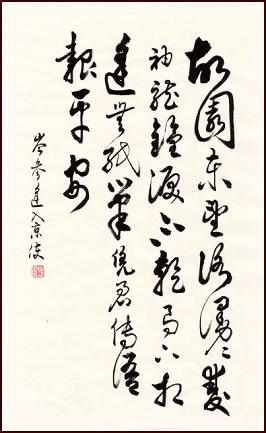 故園東望路漫〻雙
袖龍鐘淚不乾馬上相
逢無紙筆憑君傳語
報平安
岑參逢入京使